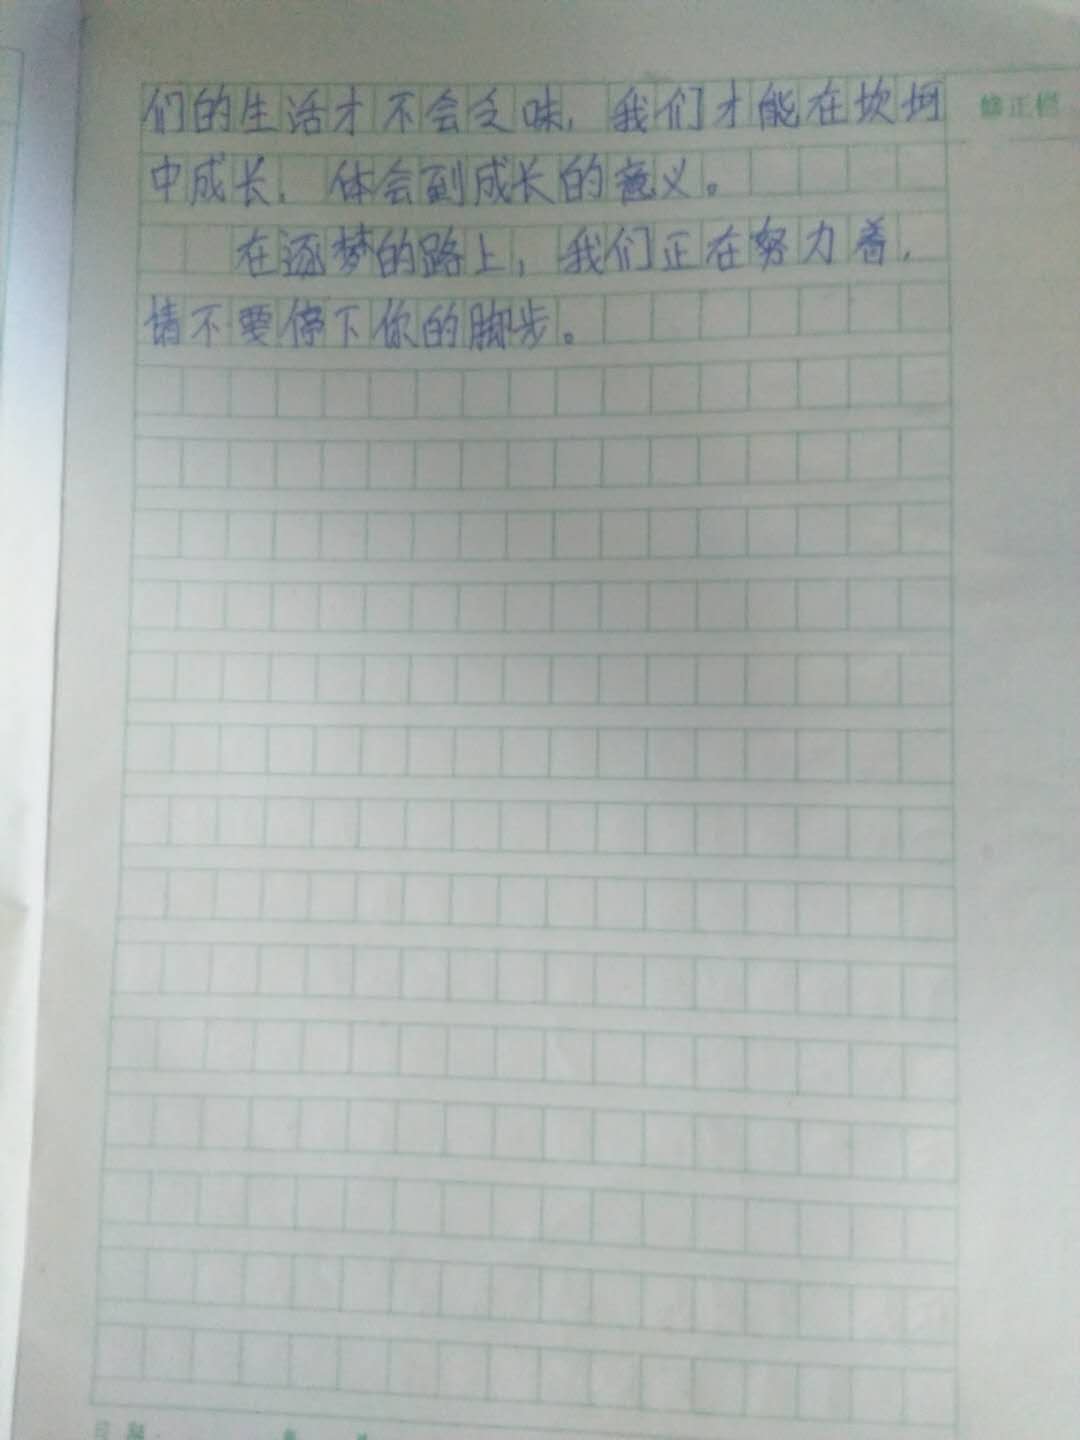 们的生活才不会乏味，我们才能在坎坷
修正栏
中成长，体会到成长的意义。
在逐梦的路上，我们正在努力着，
请不要停下你的脚步。